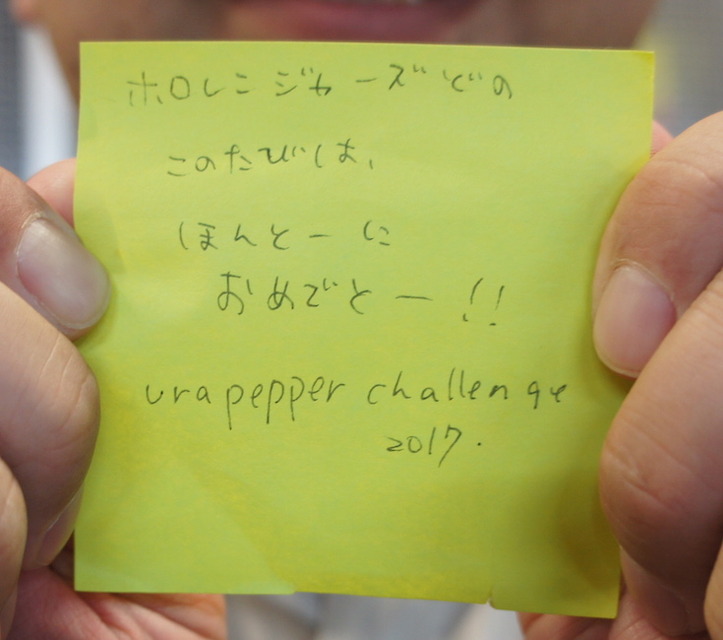 ホロレンジャーズどの
このたびは、
ほんとーに
おめでとー!!
urapepper challenge
2017.